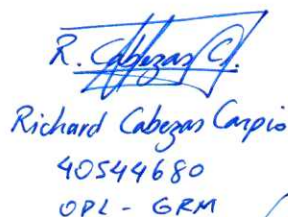 R. Cabezas C.
Richard Cabezas Carpio
40544680
OPL - GRM